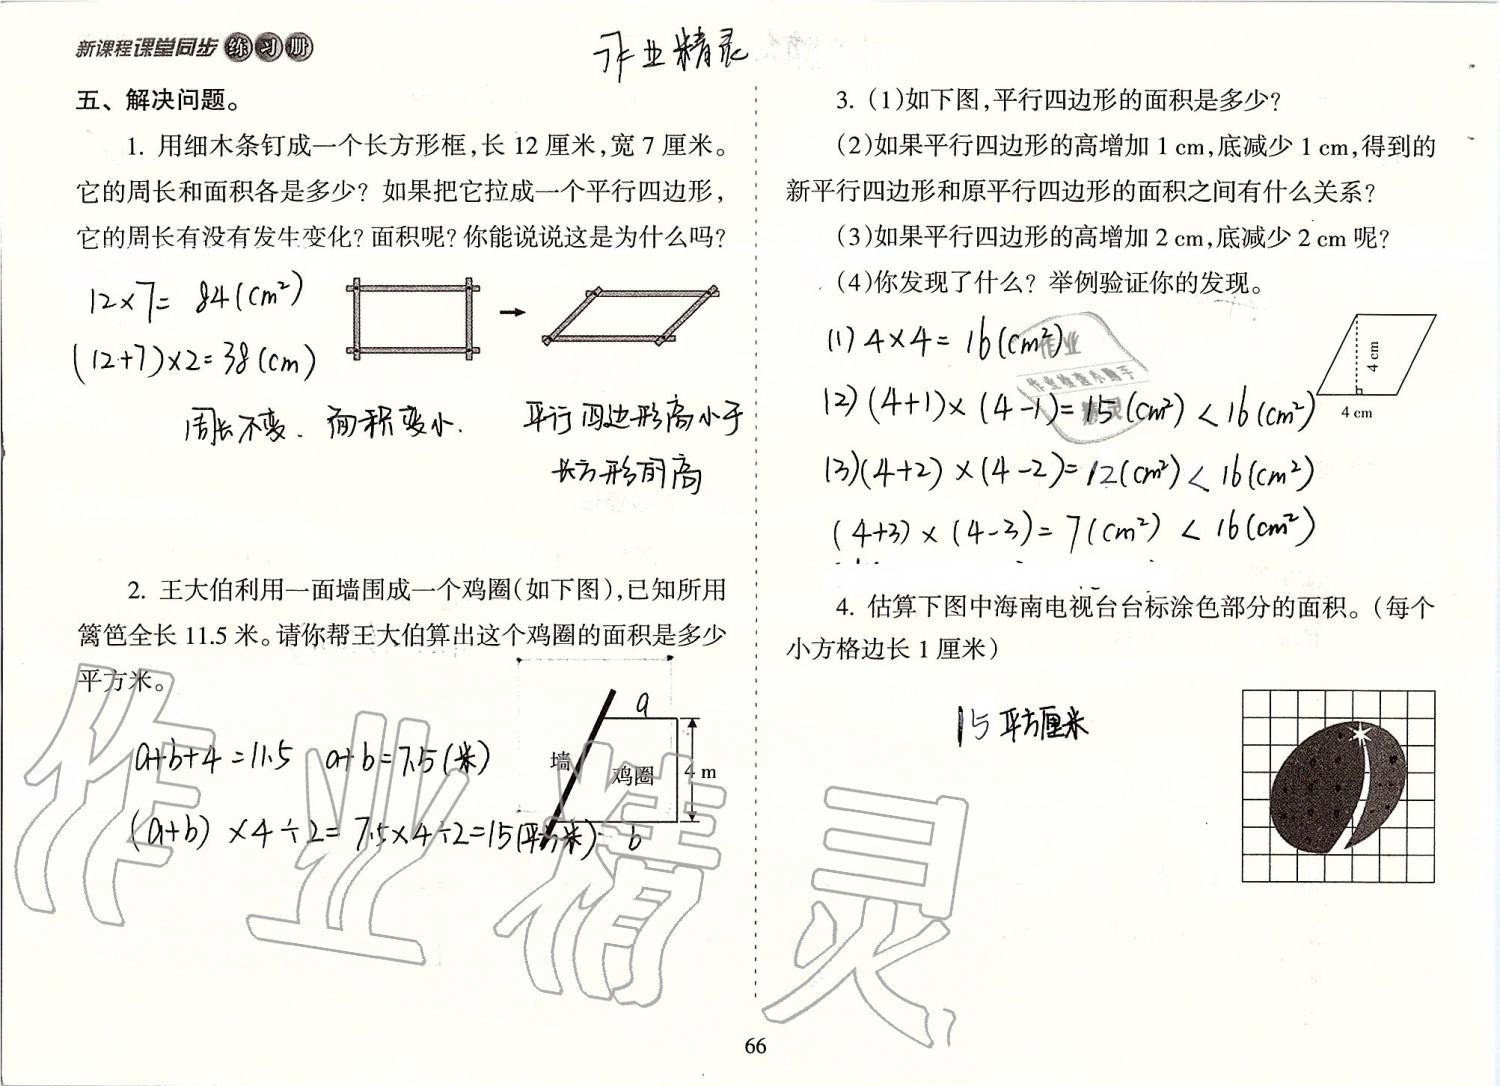 新课程课堂同步练习册
作业精灵
五、解决问题。
1. 用细木条钉成一个长方形框,长 12 厘米,宽 7 厘米。
它的周长和面积各是多少? 如果把它拉成一个平行四边形,
它的周长有没有发生变化? 面积呢? 你能说说这是为什么吗?
12×7= 84(cm²)
(12+7)×2=38(cm)
周长不变. 面积变小.
平行四边形高小于
长方形的高
2. 王大伯利用一面墙围成一个鸡圈(如下图),已知所用
篱笆全长 11.5 米。请你帮王大伯算出这个鸡圈的面积是多少
平方米。
a
墙
鸡圈
4 m
b
a+b+4=11.5 a+b=7.5(米)
(a+b)×4÷2=7.5×4÷2=15(平方米)
3. (1)如下图,平行四边形的面积是多少?
(2)如果平行四边形的高增加 1 cm,底减少 1 cm,得到的
新平行四边形和原平行四边形的面积之间有什么关系?
(3)如果平行四边形的高增加 2 cm,底减少 2 cm 呢?
(4)你发现了什么? 举例验证你的发现。
4 cm
4 cm
(1) 4×4= 16(cm²)
(2) (4+1)×(4-1)=15(cm²)<16(cm²)
(3)(4+2)×(4-2)=12(cm²)<16(cm²)
(4+3)×(4-3)=7(cm²)<16(cm²)
作业
作业检查小助手
精灵
4. 估算下图中海南电视台台标涂色部分的面积。(每个
小方格边长 1 厘米)
15平方厘米
作业精灵
66